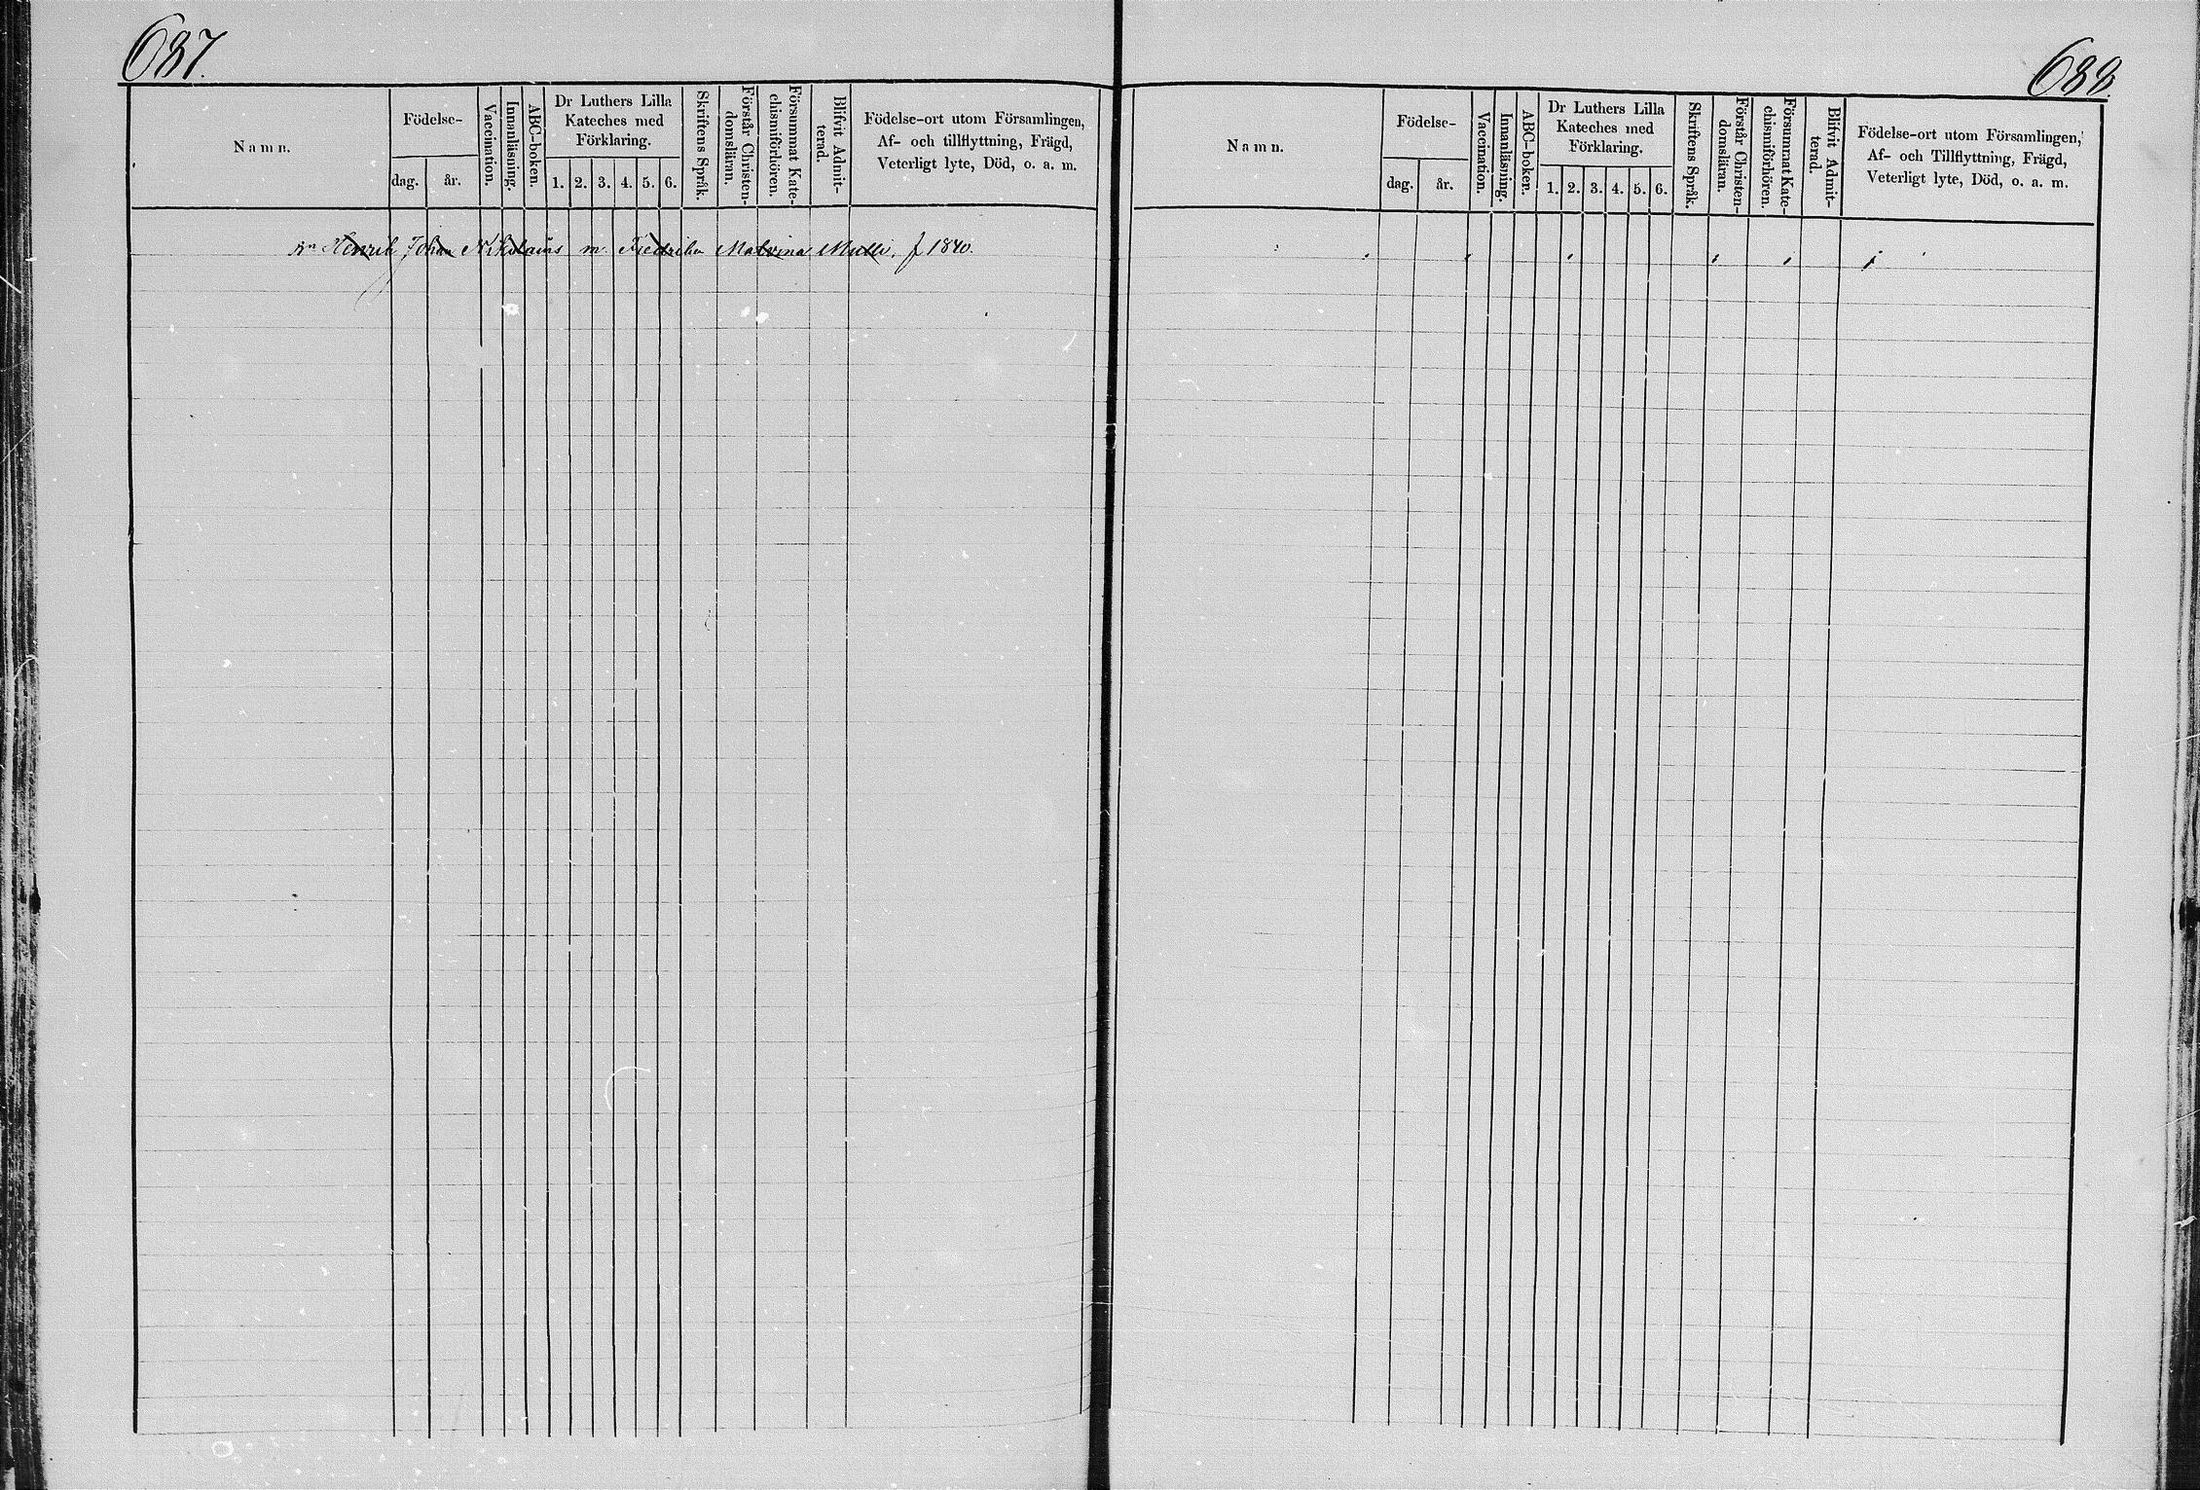 687.
Namn.
Födelse-
dag.
år.
Vaccination.
Innanläsning.
ABC-boken.
Dr Luthers Lilla
Kateches med
Förklaring.
1. 2. 3. 4. 5. 6.
Skriftens Språk.
Förstår Christen-
domsläran.
Försummat Kate-
chismiförhören.
Blifvit Admit-
terad.
Födelse-ort utom Församlingen,
Af- och tillflyttning, Frägd,
Veterligt lyte, Död, o. a. m.
Henrik Johan Nikolaus m. Fredrika Malvina f 1840.
688.
Namn.
Födelse-
dag.
år.
Vaccination.
Innanläsning.
ABC-boken.
Dr Luthers Lilla
Kateches med
Förklaring.
1. 2. 3. 4. 5. 6.
Skriftens Språk.
Förstår Christen-
domsläran.
Försummat Kate-
chismiförhören.
Blifvit Admit-
terad.
Födelse-ort utom Församlingen,
Af- och Tillflyttning, Frägd,
Veterligt lyte, Död, o. a. m.